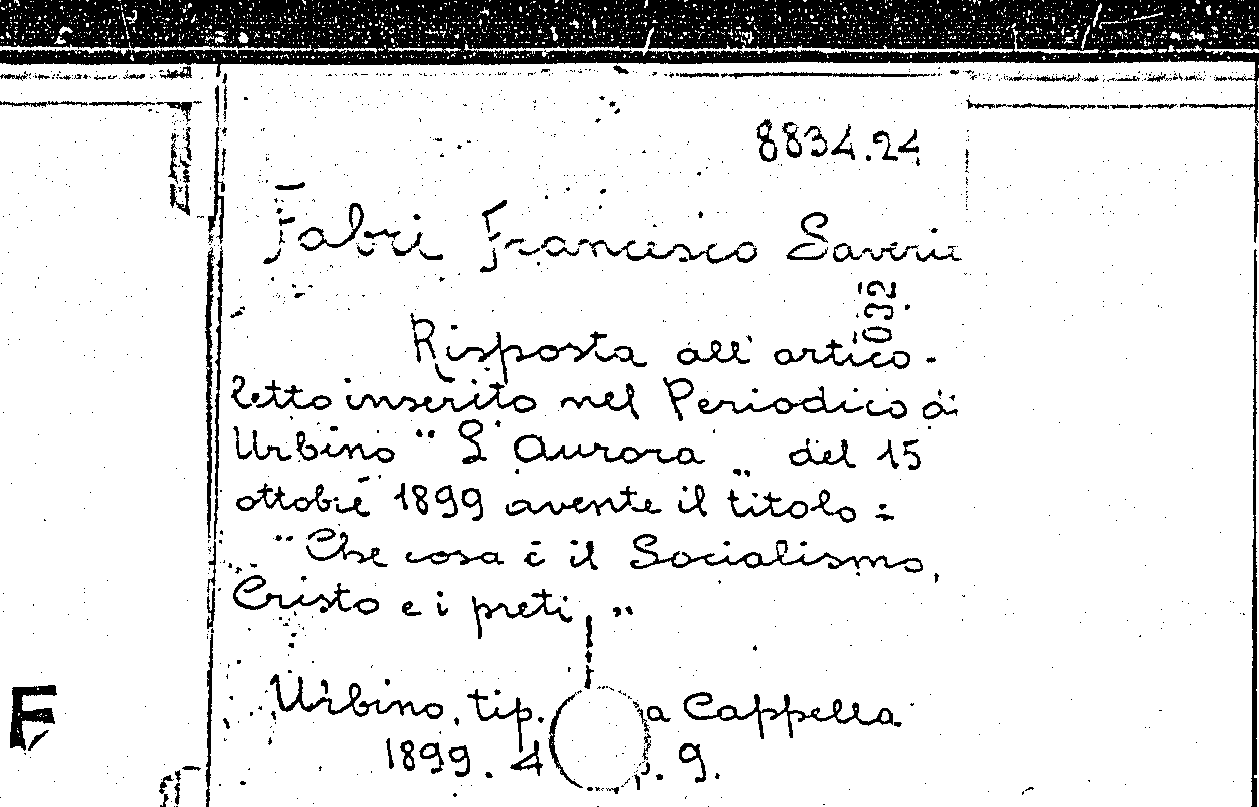 8834.24
Fabri Francesco Saverio
032
Risposta all' artico-
letto inserito nel Periodico di
Urbino " L'Aurora " del 15
ottobre 1899 avente il titolo =
"Che cosa è il Socialismo,
Cristo e i preti "
Urbino, tip. a Cappella
1899. 4 p. 9.
F